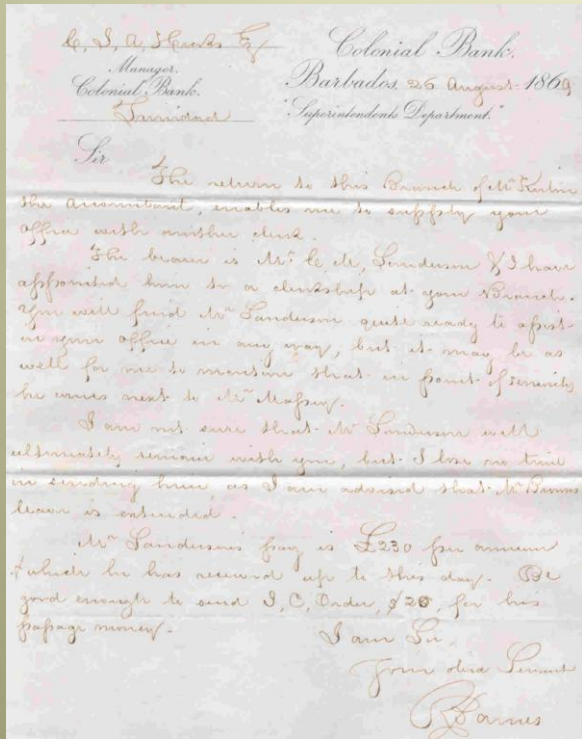 Manager.
Colonial Bank.
Trinidad
Colonial Bank.
Barbados, 26 August 1869
"Superintendents Department."
Sir
The return to this Branch of Mr
the Accountant, enables me to supply your
office with another clerk.
The bearer is Mr C. M. Sanderson & I have
appointed him to a clerkship at your Branch.
You will find Mr Sanderson quite ready to assist
in your office in any way, but it may be as
well for me to mention that in point of seniority
he comes next to Mr Massy.
I am not sure that Mr Sanderson will
ultimately remain with you, but I lose no time
in sending him as I am advised that Mr Browns
leave is extended.
Mr Sanderson's pay is £230 per annum
& which he has received up to this day. Be
good enough to send I, C, Order, $20, for his
passage money.
I am Sir,
Your obed Servant
R Barnes